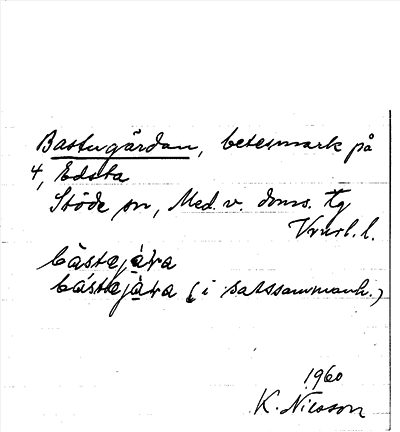 Bastugärdan, betesmark på
4, Edsta
Stöde sn, Med. v. doms. tg
Vnrl. l.
bàstejàra
bástejàra (i satssammanh.)
1960
K. Nilsson